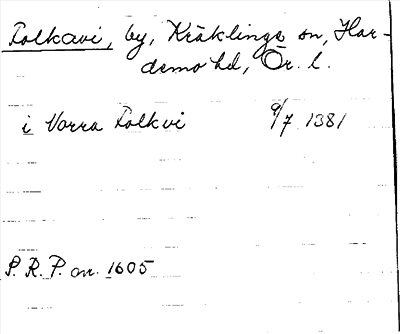 Folkavi, by, Kräklinge sn, Har-
demo hd, Ör. l.
i Norra Folkvi 9/7 1381
P. R. P. nr. 1605